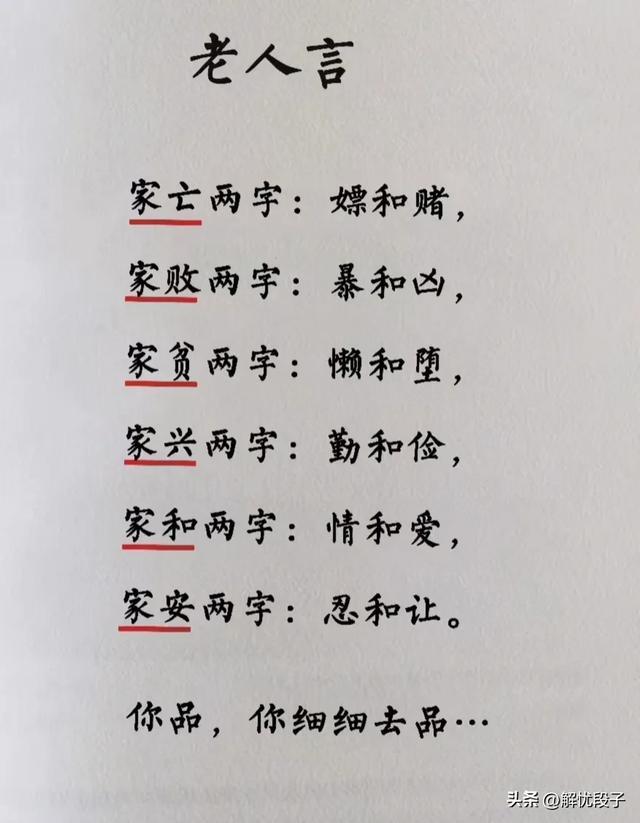 老人言
家亡两字：嫖和赌，
家败两字：暴和凶，
家贫两字：懒和堕，
家兴两字：勤和俭，
家和两字：情和爱，
家安两字：忍和让。
你品，你细细去品…
头条 @解忧段子